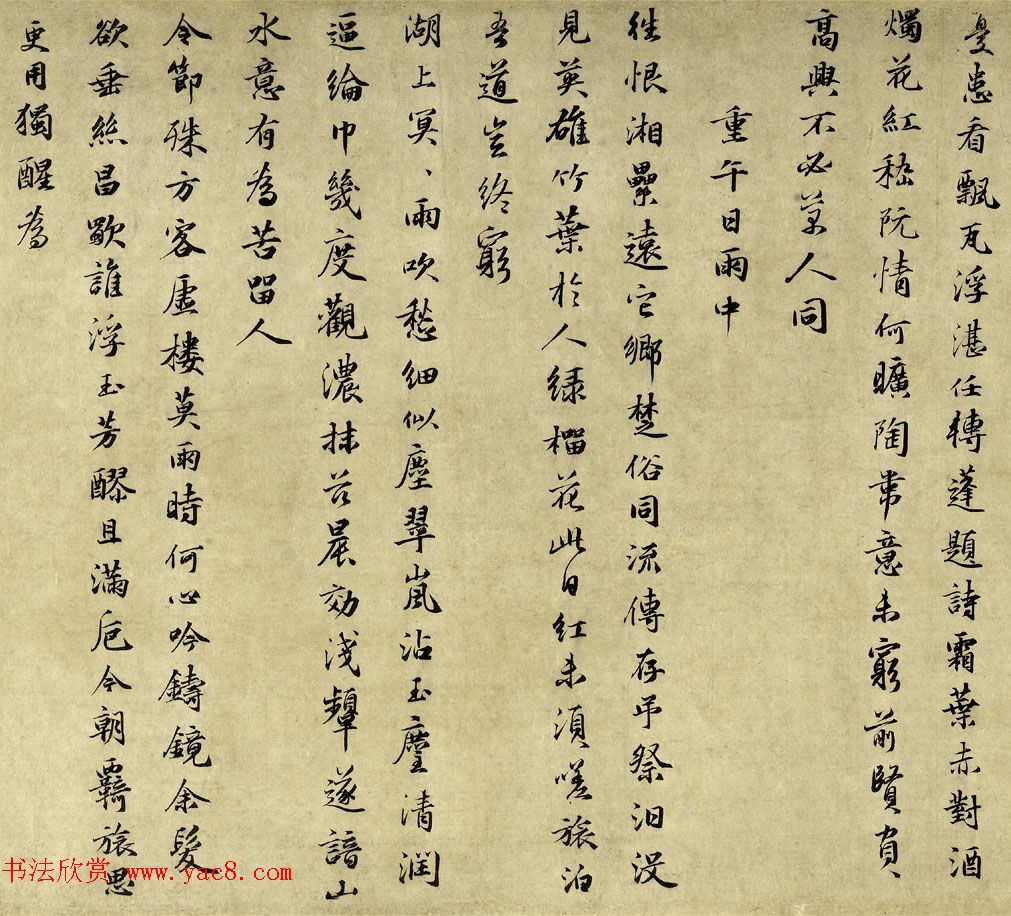 憂患看飄瓦浮湛任轉蓬題詩霜葉赤對酒
燭花紅嵇阮情何曠陶韋意未窮前賢負
高興不必萬人同
重午日雨中
往恨湘纍遠它鄉楚俗同流傳存弔祭汨沒
見英雄竹葉於人綠榴花此日紅未須嗟旅泊
吾道豈終窮
湖上冥、雨吹愁細似塵翠嵐沾玉麈清潤
逼綸巾幾度觀濃抹茲晨效淺顰遂諳山
水意有為苦留人
令節殊方客虛樓莫雨時何心吟鑄鏡余髮
欲垂絲昌歜誰浮玉芳醪且滿卮今朝羈旅思
更用獨醒為
书法欣赏 www.yac8.com